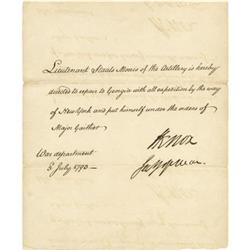 Lieutenant Staats Morris of the Artillery is hereby
directed to repair to Georgia with all expedition by the way
of New York and put himself under the orders of
Major Gaither
HKnox
Sec. of War
War department
8 July 1793